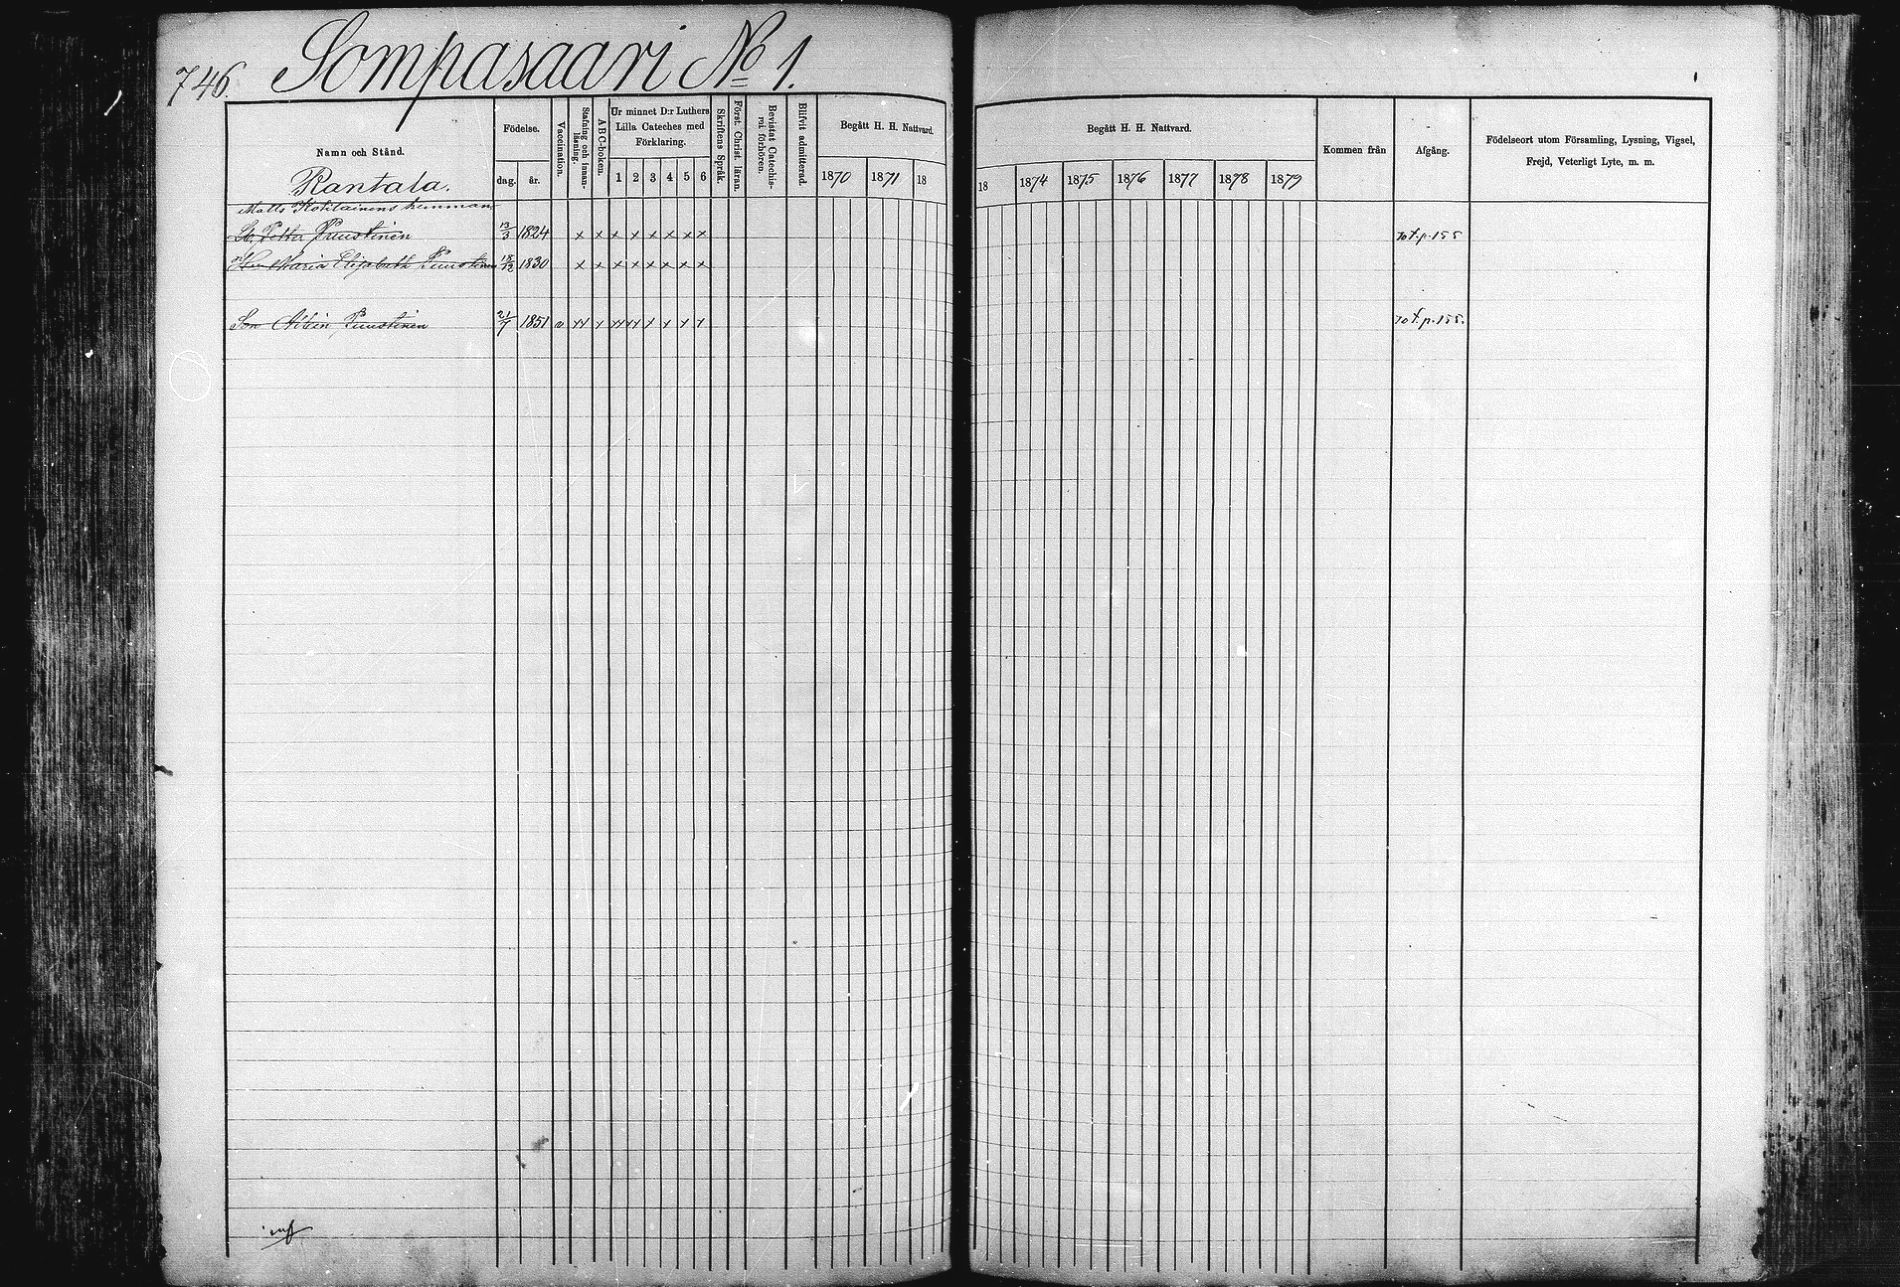 746. Sompasaari No 1.
Namn och Stånd.
Rantala.
Födelse.
dag. år.
Vaccination.
Stafning och innanläsning.
ABC-boken.
Ur minnet D:r Luthers
Lilla Cateches med
Förklaring.
1 2 3 4 5 6
Skriftens Språk.
Först. Christ. läran.
Bevistat Catechismi förhören.
Blifvit admitterad.
Begått H. H. Nattvard.
1870 1871 18
Begått H. H. Nattvard.
18 1874 1875 1876 1877 1878 1879
Kommen från
Afgång.
Födelseort utom Församling, Lysning, Vigsel,
Frejd, Veterligt Lyte, m. m.
Matts Kohilainens hemman
Petter Puustinen 12/3 1824 x x x x x x x x 70 f. p. 155
Maria Elisabeth Puustinen 18/12 1830 x x x x x x x x
Son Albin Puustinen 21/7 1851 v xx x xx xx x x x x 70 f. p. 155.